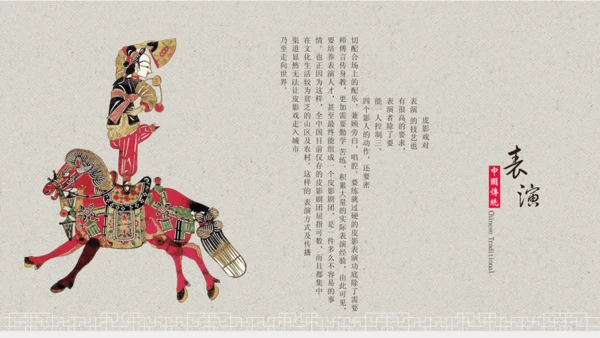 表演
中國傳統
Chinese Traditional
皮影戏对
表演 的技艺也
有很高的要求，
表演者除了要
能一人控制三、
四个影人的动作，还要密
切配合场上的配乐，兼顾旁白，唱腔。要练就过硬的皮影表演功底除了需要
师傅言传身教，更加需要勤学 苦练，积累大量的实际表演经验。由此可见，
要培养表演人才，甚至最终能组成一个皮影剧团，是一件多么不容易的事
情。也正因为这样，全中国目前仅存的皮影剧团屈指可数，而且都集中
在文化生活较为贫乏的山区及农村。这样的 表演方式及传播
渠道显然无法让皮影戏走入城市
乃至走向世界。